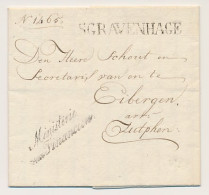 No. 1466.
SGRAVENHAGE
Den Heer Schout en
Secretaris van en te
Eibergen.
over
Zutphen
Ministerie
van Financien